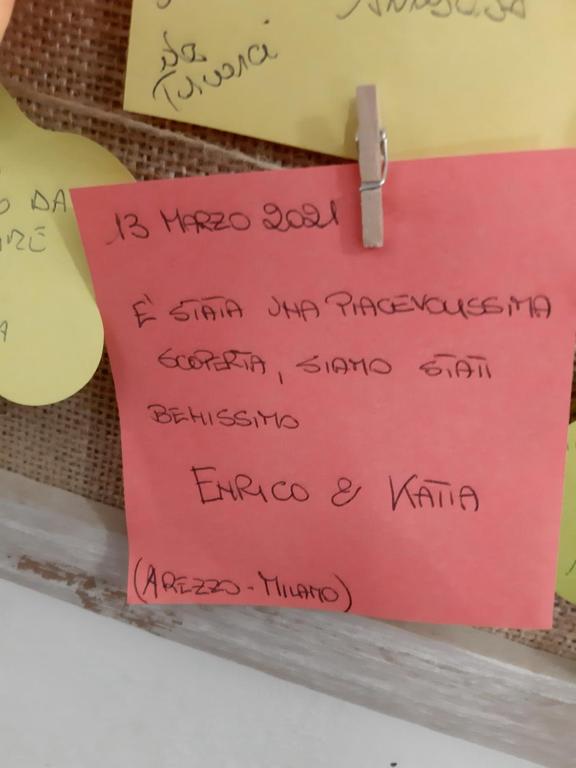 da
13 MARZO 2021
È STATA UNA PIACEVOLISSIMA
SCOPERTA, SIAMO STATI
BENISSIMO
ENRICO & KATIA
(AREZZO - MILANO)
DA